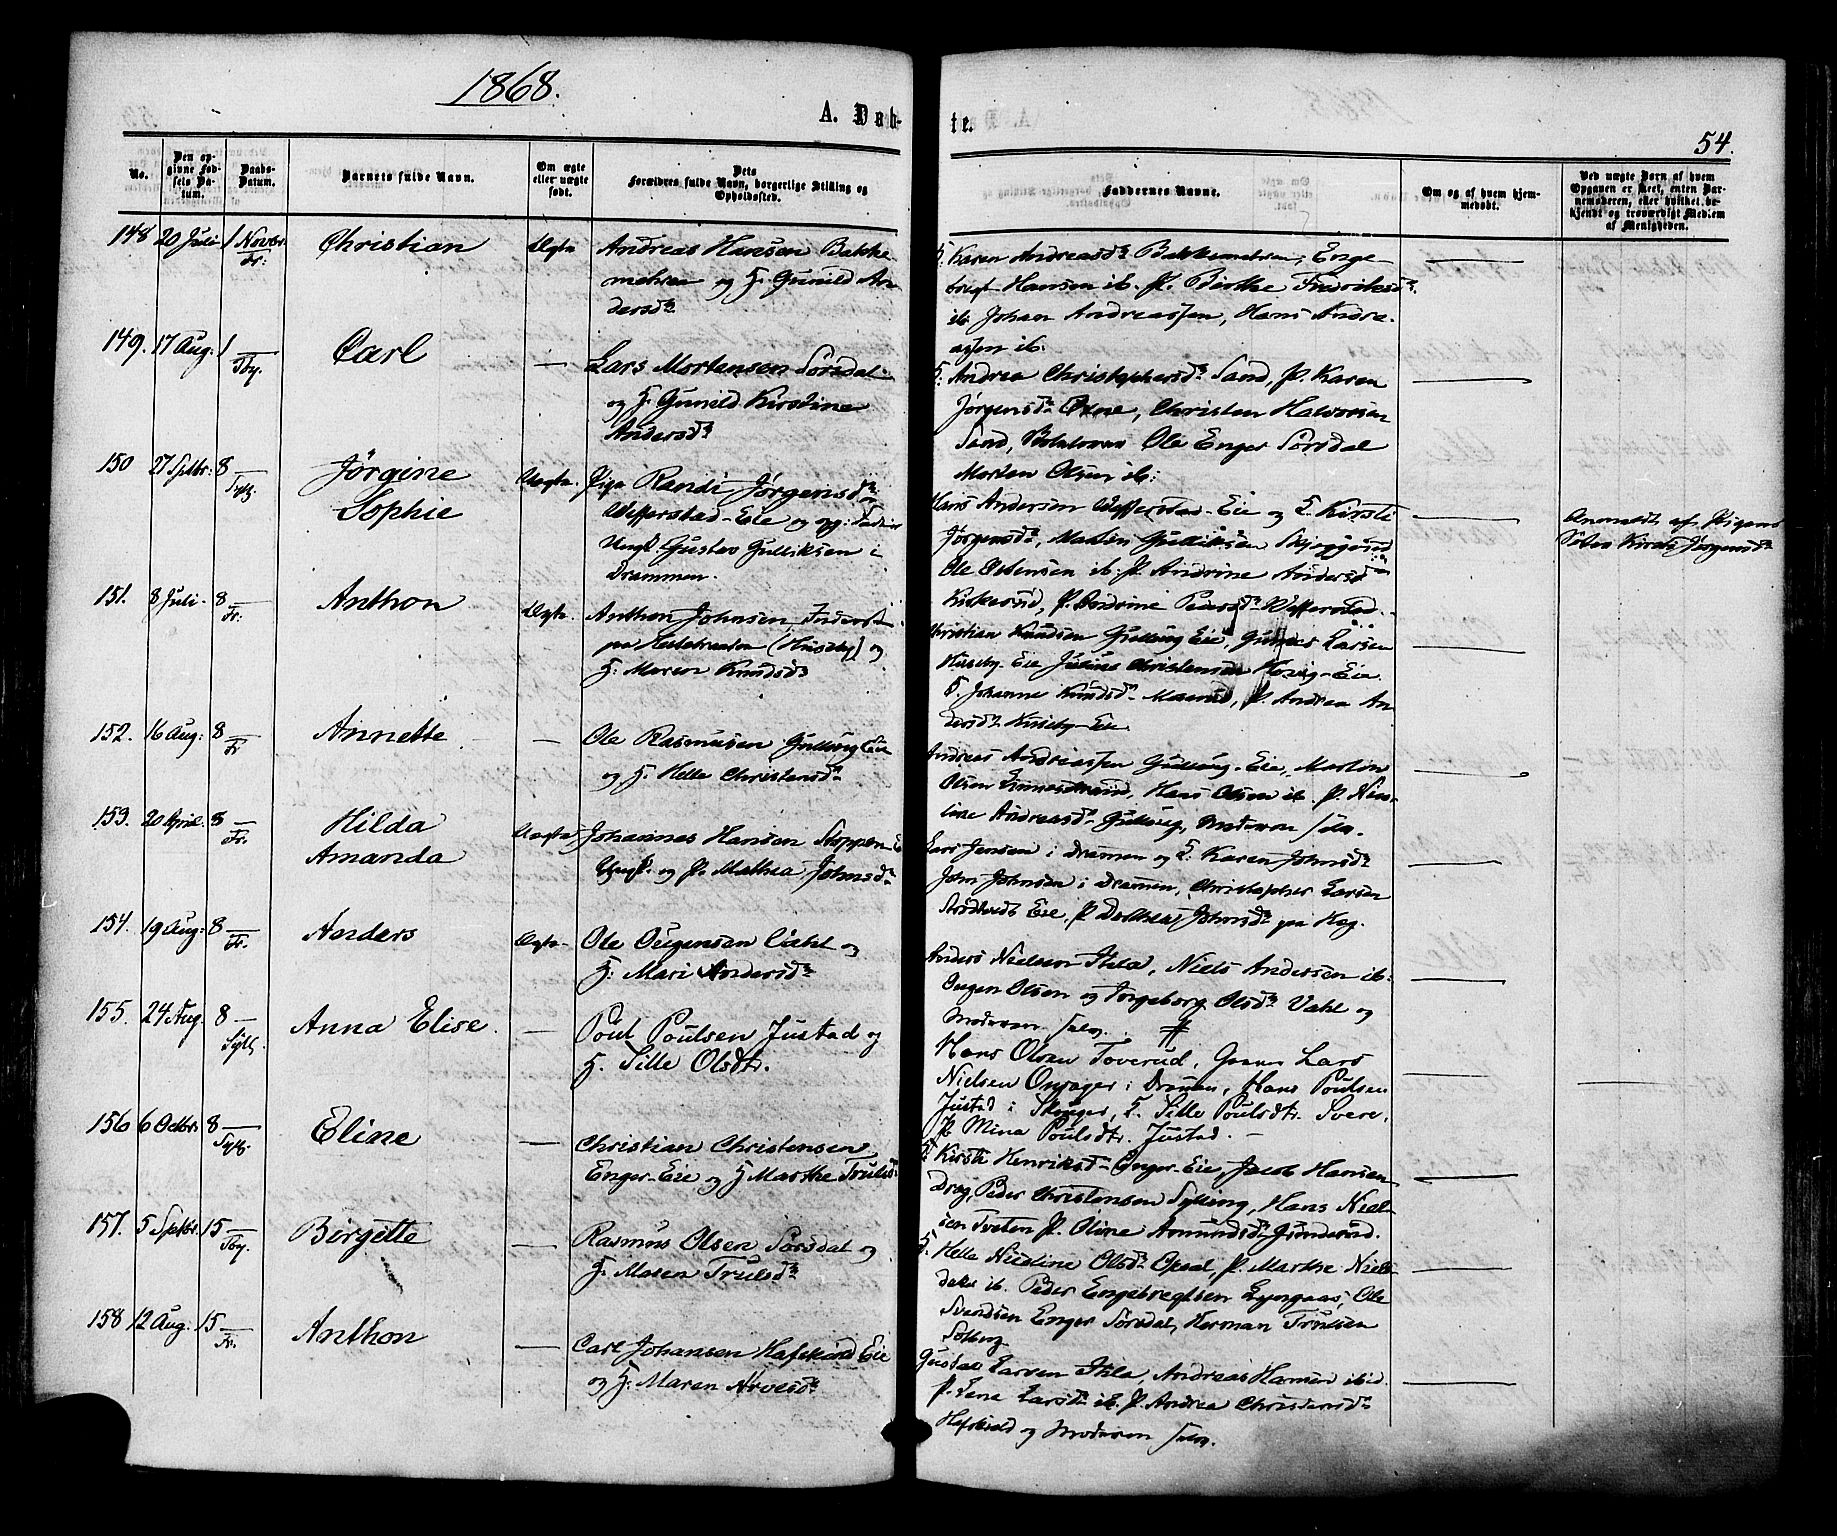 1868.
A. Døb-
te.
54.
No.
Den op-
givne Fød-
sels Da-
tum.
Daabs-
Datum.
Barnets fulde Navn.
Om ægte
eller uægte
født.
Dets
Forældres fulde Navn, borgerlige Stilling og
Opholdssted.
Faddernes Navne.
Om og af hvem hjem-
medøbt.
Ved uægte Barn af hvem
Opgaven er skeet, enten Bar-
nemoderen, eller hvilket be-
kjendt og troværdigt Medlem
af Menigheden.
148 20 Juli 1 Novbr. Fr:
Christian
Ægte
Andreas Hansen Bakke-
mehren og H. Gunild An-
dersdr
F: Karen Andreasdr Bakkemehren, Enge-
brigt Hansen ib. P. Birthe Fredriksdr
ib. Johan Andreassen, Hans Andre-
assen ib.
149. 17 Aug: 1 Tby.
Carl
—
Lars Mortensen Sørsdal
og H. Gunild Kirstine
Andersdr
F: Andrea Christophersdr Sand, P. Karen
Jørgensdr Ovne, Christen Halvorsen
Sand, Ole Enger Sørsdal
Morten Olsen ib:
150 27 Septbr. 8
Jørgine
Sophie
Uægte.
Pige Randi Jørgensdr
Wefferstad-Eie og opg: Fader
Ungk. Gustav Gulliksen i
Drammen.
Hans Andersen Wefferstad-Eie og H. Kirsti
Jørgensdr, Martin Gulliksen Skjeggerud
Ole Ostensen ib. P. Andrine Andersdr
Kiskerud, P. Andrine Pedersdr Wefferstad.
Anmeldt af Pigens
Søster Kirsti Jørgensdr
151. 8 Juli 8 Fr:
Anthon
Ægte.
Anthon Johnsen Inderst
paa (Huseby) og
H. Maren Knudsdr
Christian Knudsen Gullaug Eie, Gunder Larsen
Huseby-Eie Julius Christensen Eie
F. Johanne Knudsdr P. Andrea An-
dersdr Huseby-Eie
152. 16 Aug: 8 Fr
Annette
—
Ole Rasmusen Gullaug Eie
og H. Helle Christensdr
Andreas Andreassen Gullaug-Eie, Martin
Olsen Hans Olsen ib. P. Nico-
line Andreasdr Gullaug, Moderen selv.
153. 20 April. 8 Fr.
Hilda
Amanda
Uægte
Johannes Hansen Stoppen-E
Ungk. og P. Mathea Johnsdr
Lars Jensen i Drammen og H. Karen Johnsdr
John Johnsen i Drammen, Christopher Larsen
Eie, P. Dorthea Johnsdr paa Hag.
154. 19 Aug: 8 Fr.
Anders
Ægte
Ole Ougensen Vahl og
H. Mari Andersdr
Anders Nielsen Ihla, Niels Andersen ib.
Ougen Olsen og Torgeborg Olsdr Vahl og
Moderen selv.
155. 24 Aug. 8 Syll.
Anna Elise
—
Poul Poulsen Justad og
H. Sille Olsdtr.
Hans Olsen Toverud, Lars
Nielsen Onsager i Dramen, Hans Poulsen
Justad i Skouger, H. Sille Poulsdtr. Svere,
P. Mina Poulsdtr. Justad.
156 6 Octbr 8
Eline
—
Christian Christensen
Enger-Eie og H. Marthe Trulsdr
F. Kirsti Henriksdr Enger-Eie, Jacob Hansen
Drog, Peder Christensen Sylling, Hans Niel-
sen Tveten P. Oline Amundsdr
157. 5 Septbr. 15 Tby.
Birgitte
—
Rasmus Olsen Sørsdal og
H. Maren Trulsdr
F. Helle Nicoline Olsdr Opsal, P. Marthe Niels-
datr ib. Peder Engebregtsen Lyngaas, Ole
Svendsen Enger Sørsdal, Herman Trulsen
Solberg
158 12 Aug. 15 Fr.
Anthon
—
Carl Johansen Hafskold Eie
og H. Maren Arvesdr
Gustav Larsen Ihla, Andreas Hansen ibid.
P. Lene Larsdr ib. P. Andrea Christensdr
Hafskold og Moderen selv.